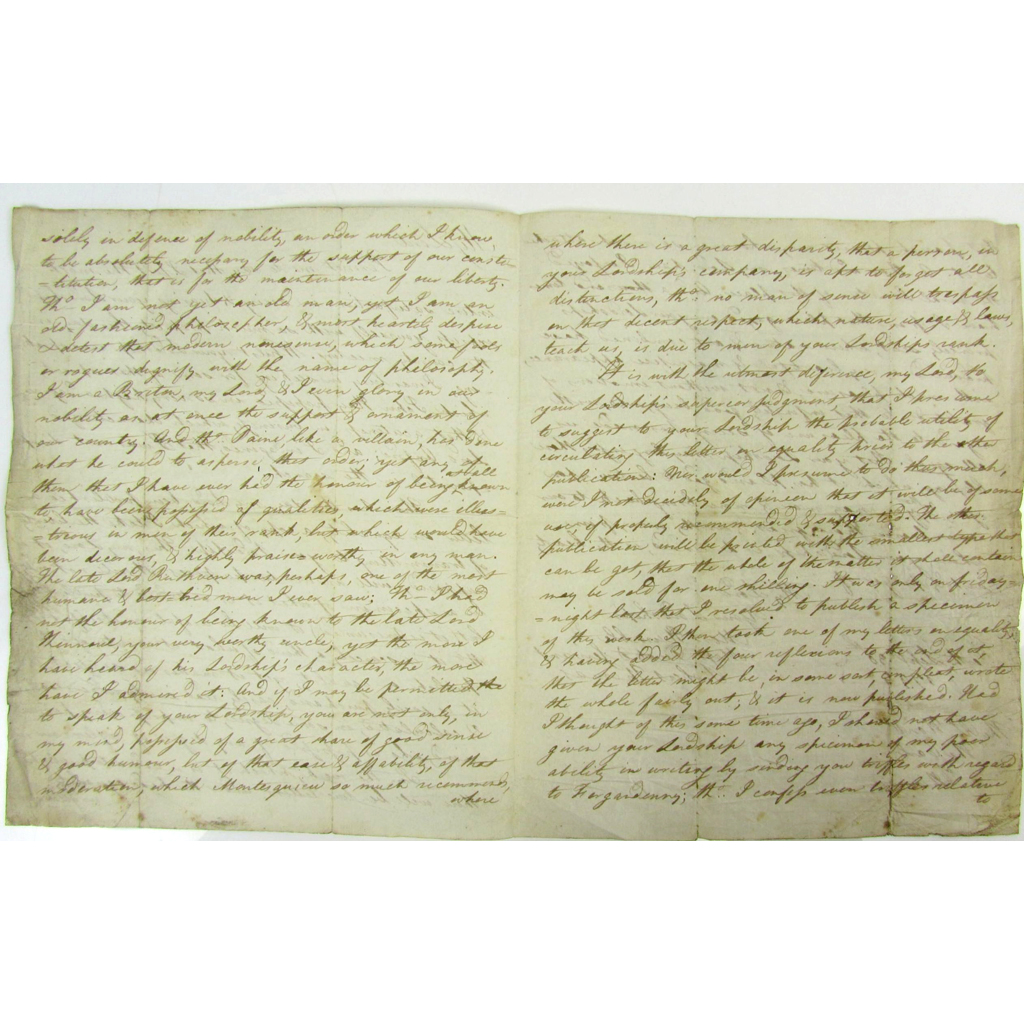 solely in defence of nobility, an order which I know
to be absolutely necessary for the support of our consti=
=titution, that is for the maintenance of our liberty.
Tho. I am not yet an old man, yet I am an
old fashioned philosopher, & most heartily despise
& detest that modern nonsense, which some fools
or rogues dignify with the name of philosophy.
I am a Briton, my Lord, & I even glory in our
nobility as at once the support & ornament of
our country. And tho. Paine, like a villain, has done
what he could to asperse that order; yet any of
them that I have ever had the honour of being known
to, have been possessed of qualities, which were illus=
=trious in men of their rank, but which would have
been decorous, & highly praise-worthy in any man.
The late Lord Ruthven was, perhaps, one of the most
humane & best-bred men I ever saw: Tho. I had
not the honour of being known to the late Lord
Kinnaird, your very worthy uncle, yet the more I
have heard of his Lordship's character, the more
have I admired it: And if I may be permitted the
to speak of your Lordship, you are not only, in
my mind, possessed of a great share of good sense
& good humour, but of that ease & affability, of that
moderation, which Montesquieu so much recommends,
where
where there is a great disparity, that a person, in
your Lordship's company, is apt to forget all
distinctions, tho. no man of sense will trespass
on that decent respect, which nature, usage & laws,
teach us, is due to men of your Lordship's rank.
It is with the utmost deference, my Lord, to
your Lordship's superior judgment that I presume
to suggest to your Lordship the probable utility of
circulating this letter on equality prior to the other
publication: Nor would I presume to do thus much,
were I not decidedly of opinion that it will be of some
use, if properly recommended & supported. The other
publication will be printed with the smallest types that
can be got, that the whole of the matter it shall contain
may be sold for one shilling. It was only on friday=
=night last that I resolved to publish a specimen
of this work. I then took one of my letters on equality,
& having added the four reflexions to the end of it,
that the letter might be, in some sort, compleat, wrote
the whole fairly out, & it is now published. Had
I thought of this some time ago, I should not have
given your Lordship any specimen of my poor
ability in writing by sending you trifles with regard
to Forgandenny; tho. I confess even trifles relative
to